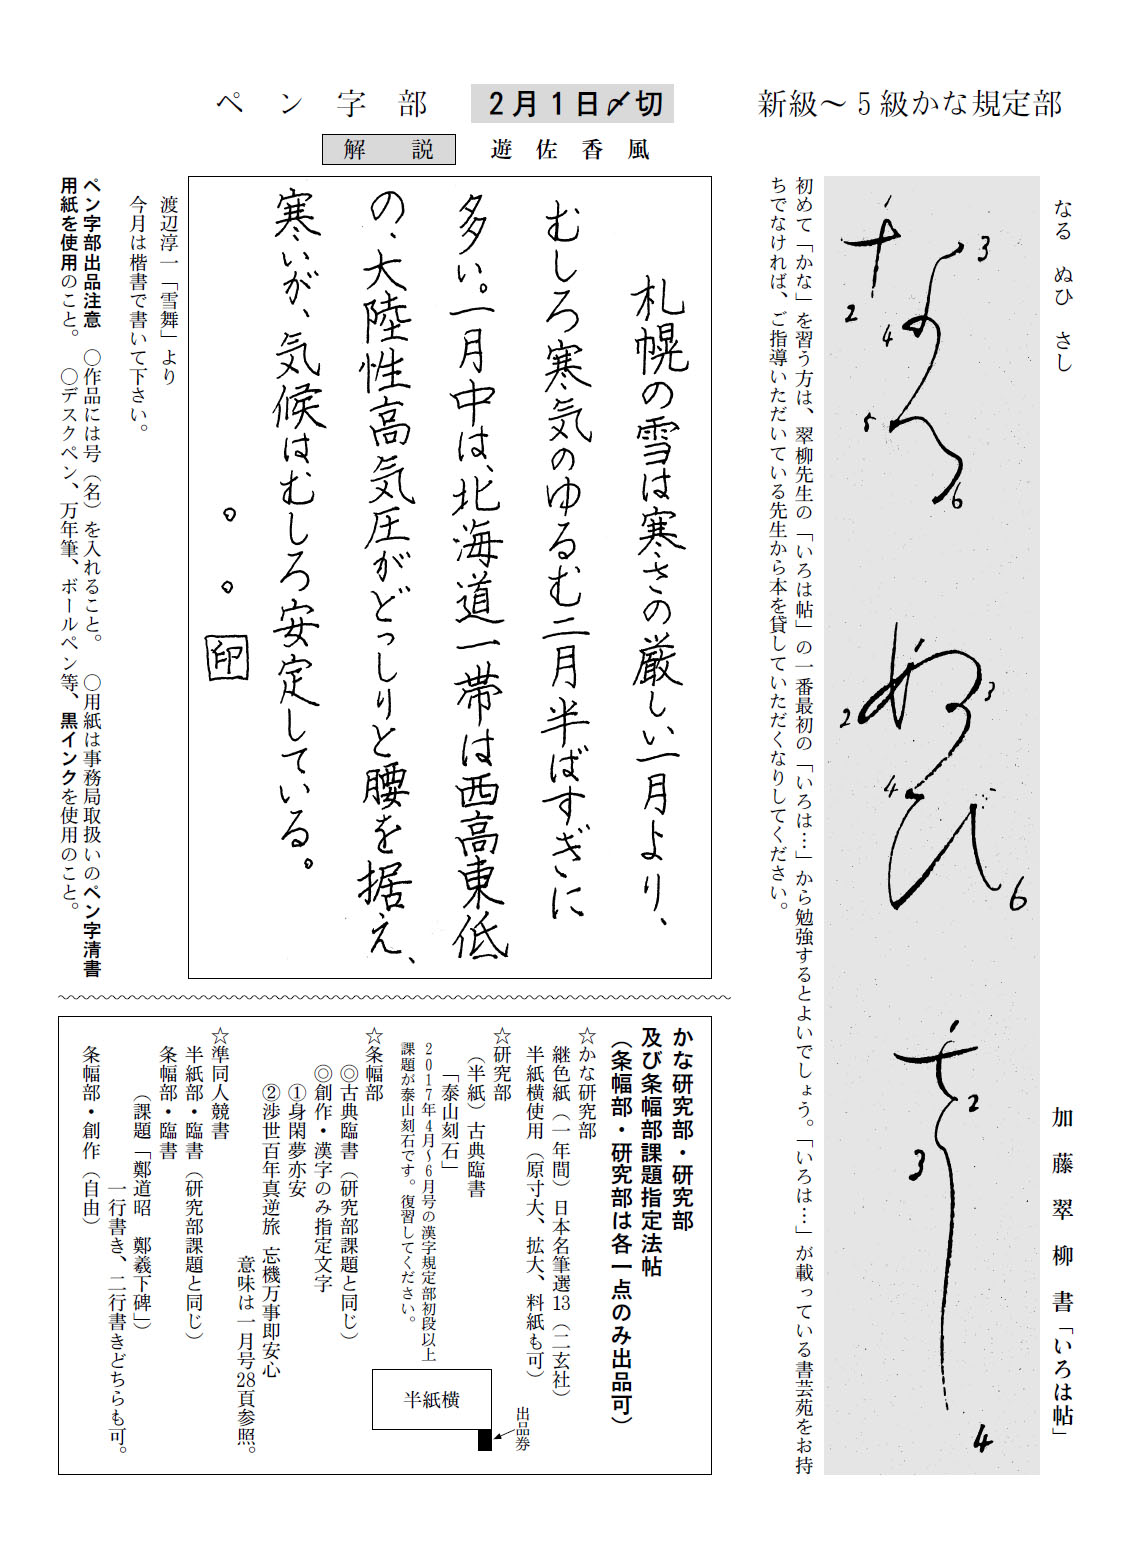 新級～5級かな規定部
なる　ぬひ　さし
加藤翠柳書「いろは帖」
1
2
3
4
5
6
なる
1
2
3
4
6
ぬひ
1
2
3
4
さし
初めて「かな」を習う方は、翠柳先生の「いろは帖」の一番最初の「いろは…」から勉強するとよいでしょう。「いろは…」が載っている書芸苑をお持
ちでなければ、ご指導いただいている先生から本を貸していただくなりしてください。
ペン字部
2月1日〆切
解説
遊佐香風
札幌の雪は寒さの厳しい一月より、
むしろ寒気のゆるむ二月半ばすぎに
多い。一月中は、北海道一帯は西高東低
の、大陸性高気圧がどっしりと腰を据え、
寒いが、気候はむしろ安定している。
。。印
渡辺淳一「雪舞」より
今月は楷書で書いて下さい。
ペン字部出品注意　○作品には号（名）を入れること。　○用紙は事務局取扱いのペン字清書
用紙を使用のこと。　○デスクペン、万年筆、ボールペン等、黒インクを使用のこと。
かな研究部・研究部
及び条幅部課題指定法帖
（条幅部・研究部は各一点のみ出品可）
☆かな研究部
継色紙（一年間）日本名筆選13（二玄社）
半紙横使用（原寸大、拡大、料紙も可）
☆研究部
（半紙）古典臨書
「泰山刻石」
2017年4月～6月号の漢字規定部初段以上
課題が泰山刻石です。復習してください。
半紙横
出品券
☆条幅部
◎古典臨書（研究部課題と同じ）
◎創作・漢字のみ指定文字
①身閑夢亦安
②渉世百年真逆旅　忘機万事即安心
意味は一月号28頁参照。
☆準同人競書
半紙部・臨書（研究部課題と同じ）
条幅部・臨書
（課題「鄭道昭　鄭羲下碑」）
一行書き、二行書きどちらも可。
条幅部・創作（自由）